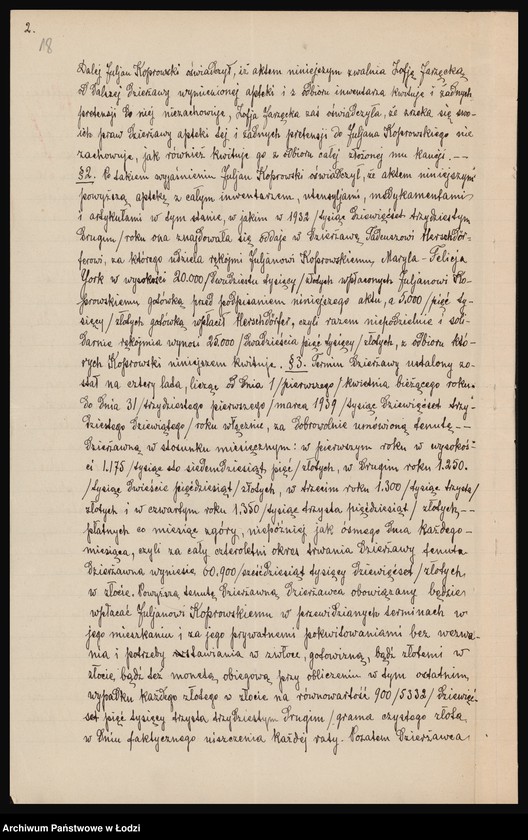 2.
18
Dalej Juljan Koprowski oświadczył, iż aktem niniejszym zwalnia Zofję Jarzęcką
z dalszej dzierżawy wymienionej apteki i z odbioru inwentarza kwituje i żadnych
pretensji do niej niezachowuje, Zofja Jarzęcka zaś oświadczyła, że zrzeka się swo-
ich praw dzierżawy apteki tej i żadnych pretensji do Juljana Koprowskiego nie
zachowuje, jak również kwituje go z odbioru całej złożonej mu kaucji. --
§2. Po takiem wyjaśnieniu Juljan Koprowski oświadczył, że aktem niniejszym
powyższą aptekę z całym inwentarzem, utensyljami, medykamentami
i artykułami w tym stanie, w jakim w 1932 /tysiąc dziewięćset trzydziestym
drugim/ roku ona znajdowała się oddaje w dzierżawę Tadeuszowi Herschdör-
ferowi, za którego udziela rękojmi Juljanowi Koprowskiemu, Maryla-Felicja
York w wysokości 20.000 /dwudziestu tysięcy/ złotych wpłaconych Juljanowi Ko-
prowskiemu gotówką przed podpisaniem niniejszego aktu, a 5.000 /pięć ty-
sięcy/ złotych gotówką wpłacił Herschdörfer, czyli razem niepodzielnie i soli-
darnie rękojmia wynosi 25.000 /dwadzieścia pięć tysięcy/ złotych, z odbioru któ-
rych Koprowski niniejszem kwituje. §3. Termin dzierżawy ustalony zo-
stał na cztery lata, licząc od dnia 1 /pierwszego/ kwietnia bieżącego roku
do dnia 31 /trzydziestego pierwszego/ marca 1939 /tysiąc dziewięćset trzy-
dziestego dziewiątego/ roku włącznie, za dobrowolnie umówioną tenutę --
dzierżawną w stosunku miesięcznym: w pierwszym roku w wysokoś-
ci 1.175 /tysiąc sto siedemdziesiąt pięć/ złotych, w drugim roku 1.250
/tysiąc dwieście pięćdziesiąt/ złotych, w trzecim roku 1.300 /tysiąc trzysta/
złotych i w czwartym roku 1.350 /tysiąc trzysta pięćdziesiąt/ złotych, --
płatnych co miesiąc zgóry, niepóźniej jak ósmego dnia każdego -
miesiąca, czyli za cały czteroletni okres trwania dzierżawy tenuta
dzierżawna wyniesie 60.900 /sześćdziesiąt tysięcy dziewięćset/ złotych
w złocie. Powyższą tenutę dzierżawną dzierżawca obowiązany będzie
wpłacać Juljanowi Koprowskiemu w przewidzianych terminach w
jego mieszkaniu i za jego prywatnemi pokwitowaniami bez wezwa-
nia i potrzeby stawiania w zwłoce, gotowizną, bądź złotemi w
złocie, bądź też monetą obiegową przy obliczeniu w tym ostatnim
wypadku każdego złotego w złocie na równowartość 900/5332 /dziewięć-
set pięć tysięcy trzysta trzydziestym drugim/ grama czystego złota
w dniu faktycznego uiszczenia każdej raty. Pozatem dzierżawca
Archiwum Państwowe w Łodzi